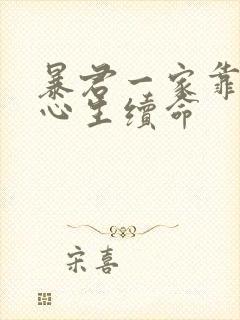 暴君一家靠
心生续命
宋喜